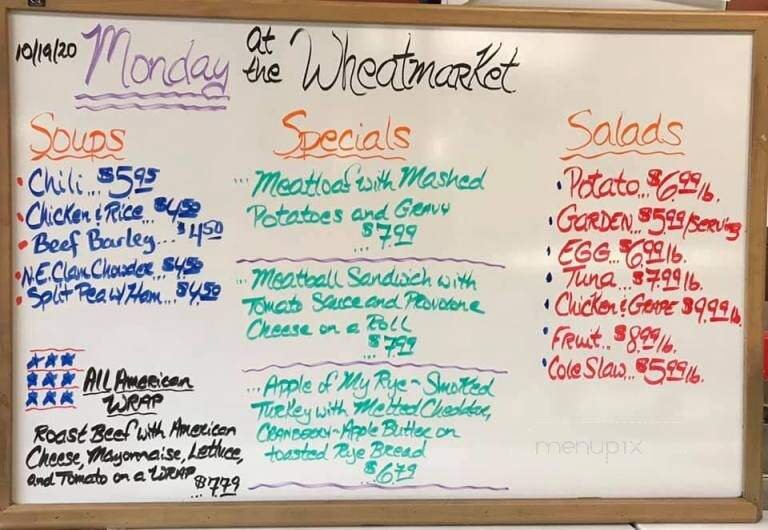 10/19/20 Monday at the Wheatmarket
Soups
• Chili... $5.95
• Chicken & Rice... $4.50
• Beef Barley... $4.50
• N.E. Clam Chowder... $4.50
• Split Pea w/ Ham... $4.50
All American
Wrap
Roast Beef with American
Cheese, Mayonnaise, Lettuce,
and Tomato on a Wrap
$7.79
Specials
... Meatloaf with Mashed
Potatoes and Gravy
... $7.99
... Meatball Sandwich with
Tomato Sauce and Provorone
Cheese on a Roll
... $7.99
... Apple of My Rye ~ Smoked
Turkey with Melted Cheddar,
Cranberry-Apple Butter on
toasted Rye Bread
$6.79
Salads
• Potato... $6.99 lb.
• Garden... $5.99/serving
• Egg... $6.99 lb.
• Tuna... $7.99 lb.
• Chicken & Grape $9.99 lb.
• Fruit... $8.99 lb.
• Cole Slaw... $5.99 lb.
menupix